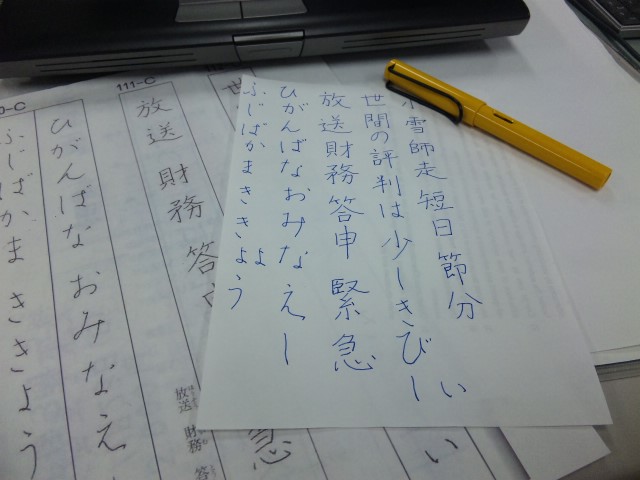 小雪師走短日節分
世間の評判は少しきびしい
放送財務答申緊急
ひがんばなおみなえし
ふじばかまききょう
111-C
放送財務答申
放送財務答
急
い
0-C
ひがんばなおみなえ
ふじばかまききょう